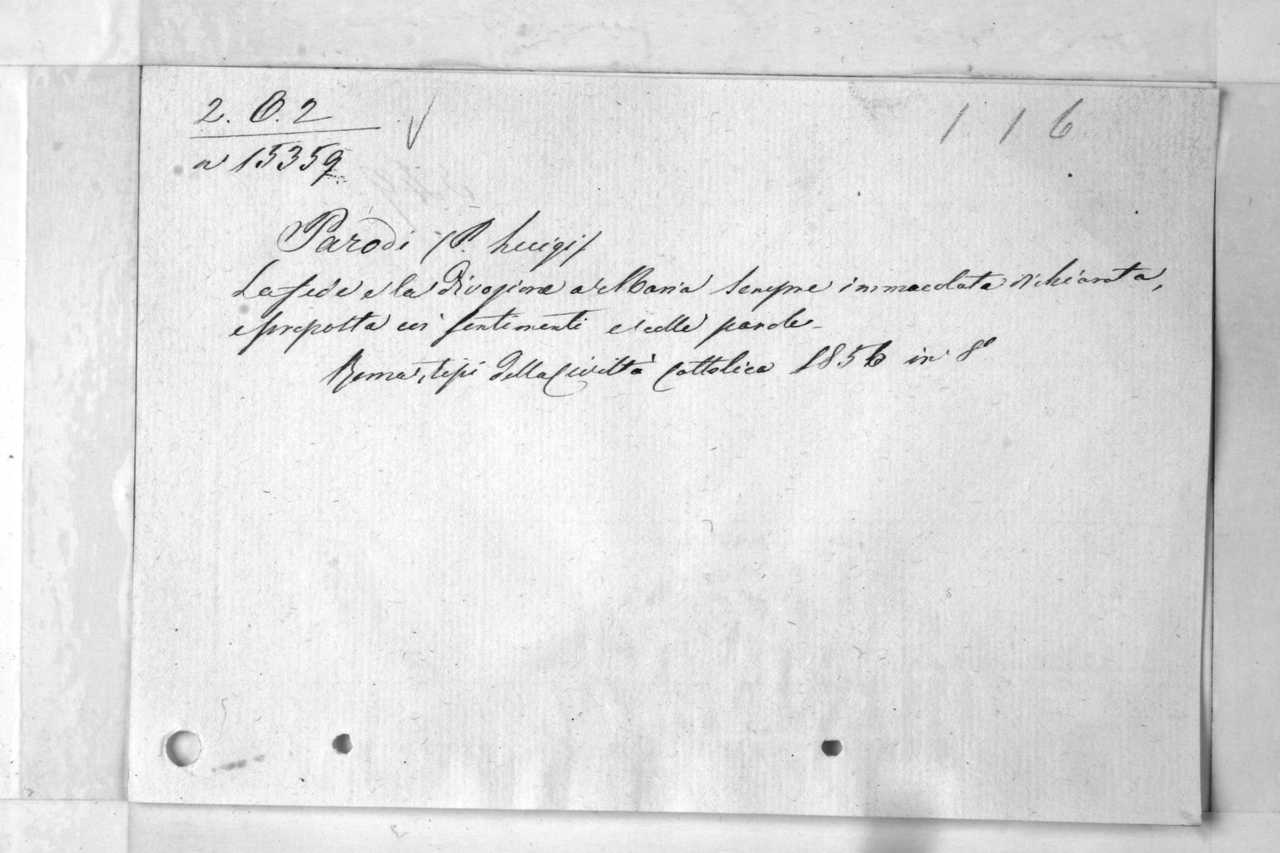 2. O. 2
1 1 6
n° 15359
Parodi (P. Luigi)
La fede e la divozione a Maria sempre immacolata dichiarata,
e proposta coi sentimenti e colle parole
Roma, tipi della Civiltà Cattolica 1856 in 8°